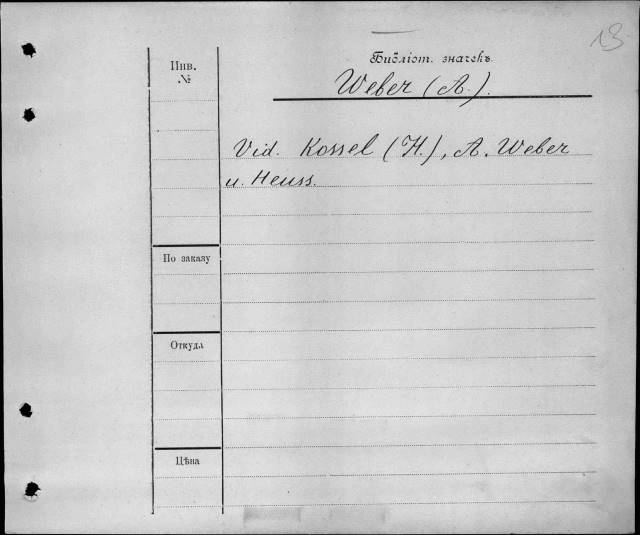 13
Библіот. значекъ.
Инв.
№
Weber (A.).
Vid. Kossel (H.), A. Weber
u. Heuss.
По заказу
Откуда
Цѣна